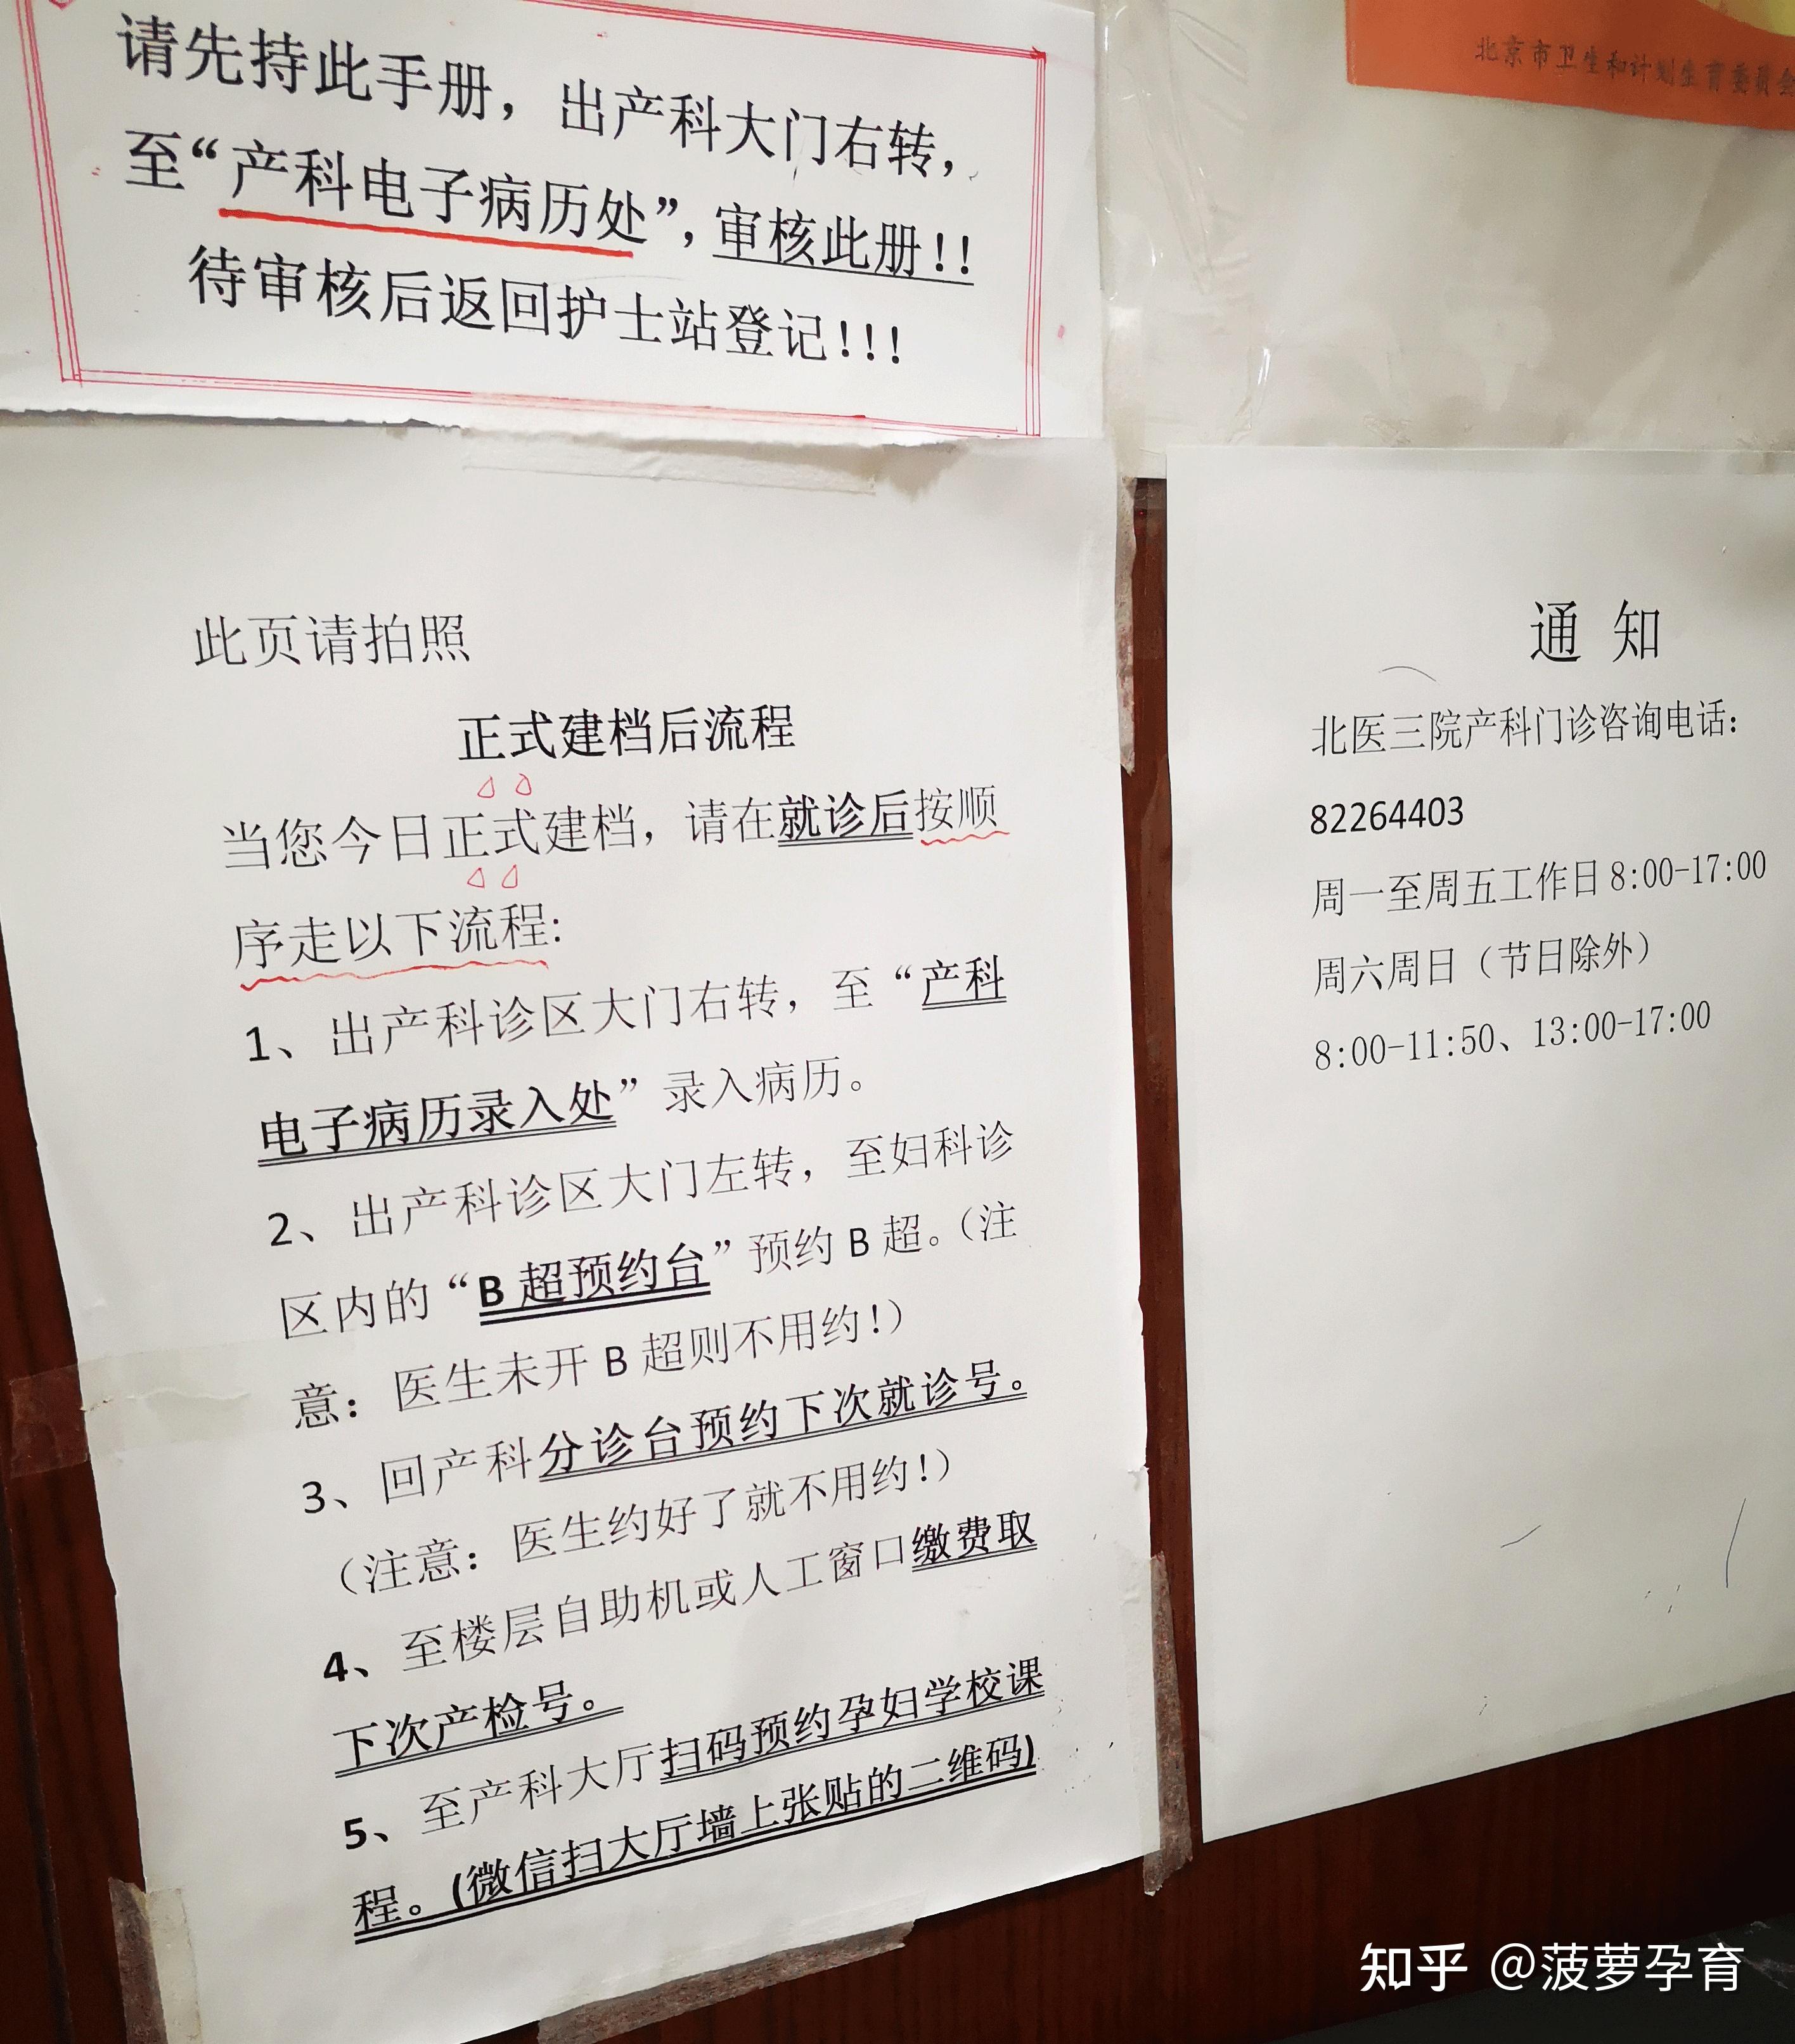 请先持此手册，出产科大门右转，
至“产科电子病历处”，审核此册！！
待审核后返回护士站登记！！！
北京市卫生和计划生育委员会
此页请拍照
正式建档后流程
当您今日正式建档，请在就诊后按顺
序走以下流程：
1、出产科诊区大门右转，至“产科
电子病历录入处”录入病历。
2、出产科诊区大门左转，至妇科诊
区内的“B超预约台”预约B超。（注
意：医生未开B超则不用约！）
3、回产科分诊台预约下次就诊号。
（注意：医生约好了就不用约！）
4、至楼层自助机或人工窗口缴费取
下次产检号。
5、至产科大厅扫码预约孕妇学校课
程。(微信扫大厅墙上张贴的二维码)
通 知
北医三院产科门诊咨询电话：
82264403
周一至周五工作日8:00-17:00
周六周日（节日除外）
8:00-11:50、13:00-17:00
知乎 @菠萝孕育